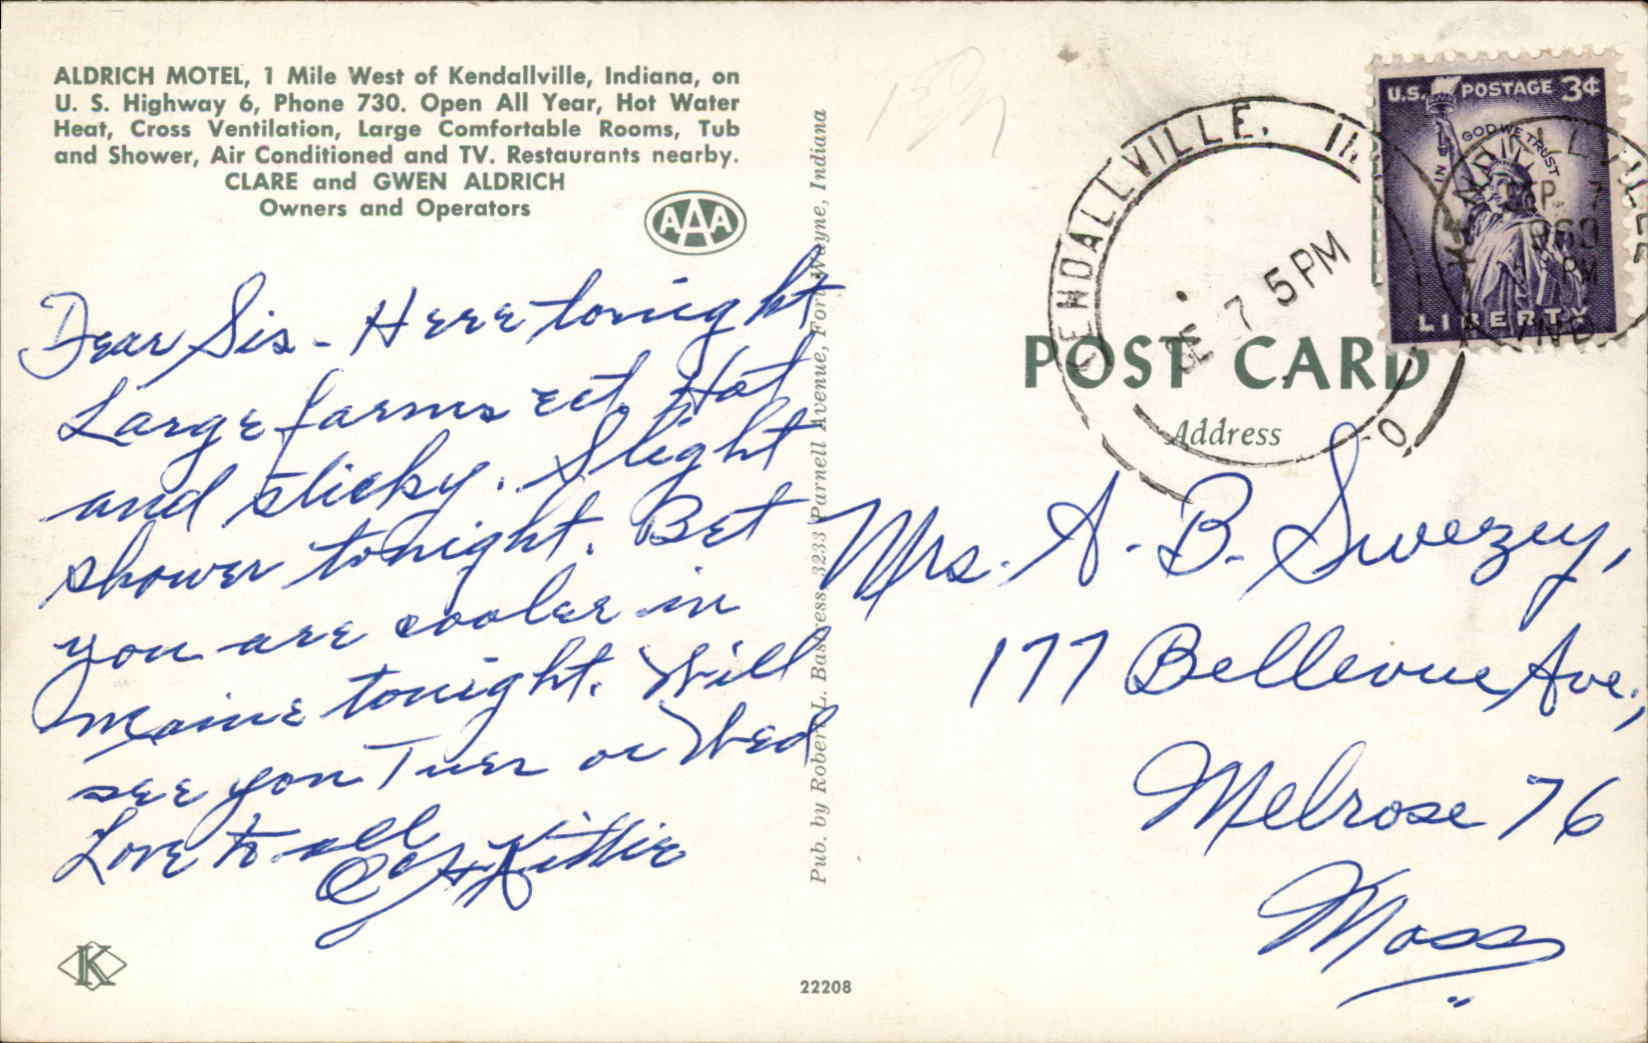 ALDRICH MOTEL, 1 Mile West of Kendallville, Indiana, on
U. S. Highway 6, Phone 730. Open All Year, Hot Water
Heat, Cross Ventilation, Large Comfortable Rooms, Tub
and Shower, Air Conditioned and TV. Restaurants nearby.
CLARE and GWEN ALDRICH
Owners and Operators
AAA
Dear Sis - Here tonight
Large farms ect. Hot
and sticky. Slight
shower tonight. Bet
you are cooler in
Maine tonight. Will
see you Tues or Wed
Love to all
Cy & Kittie
K
22208
Pub. by Robert L. Bastress, 3233 Parnell Avenue, Fort Wayne, Indiana
KENDALLVILLE, IN
SE 7 5 PM
U.S. POSTAGE 3¢
IN GOD WE TRUST
LIBERTY
KENDALLVILLE
SEP 7
1960
PM
IND.
POST CARD
Address
Mrs. A. B. Swezey,
177 Bellevue Ave.,
Melrose 76
Mass